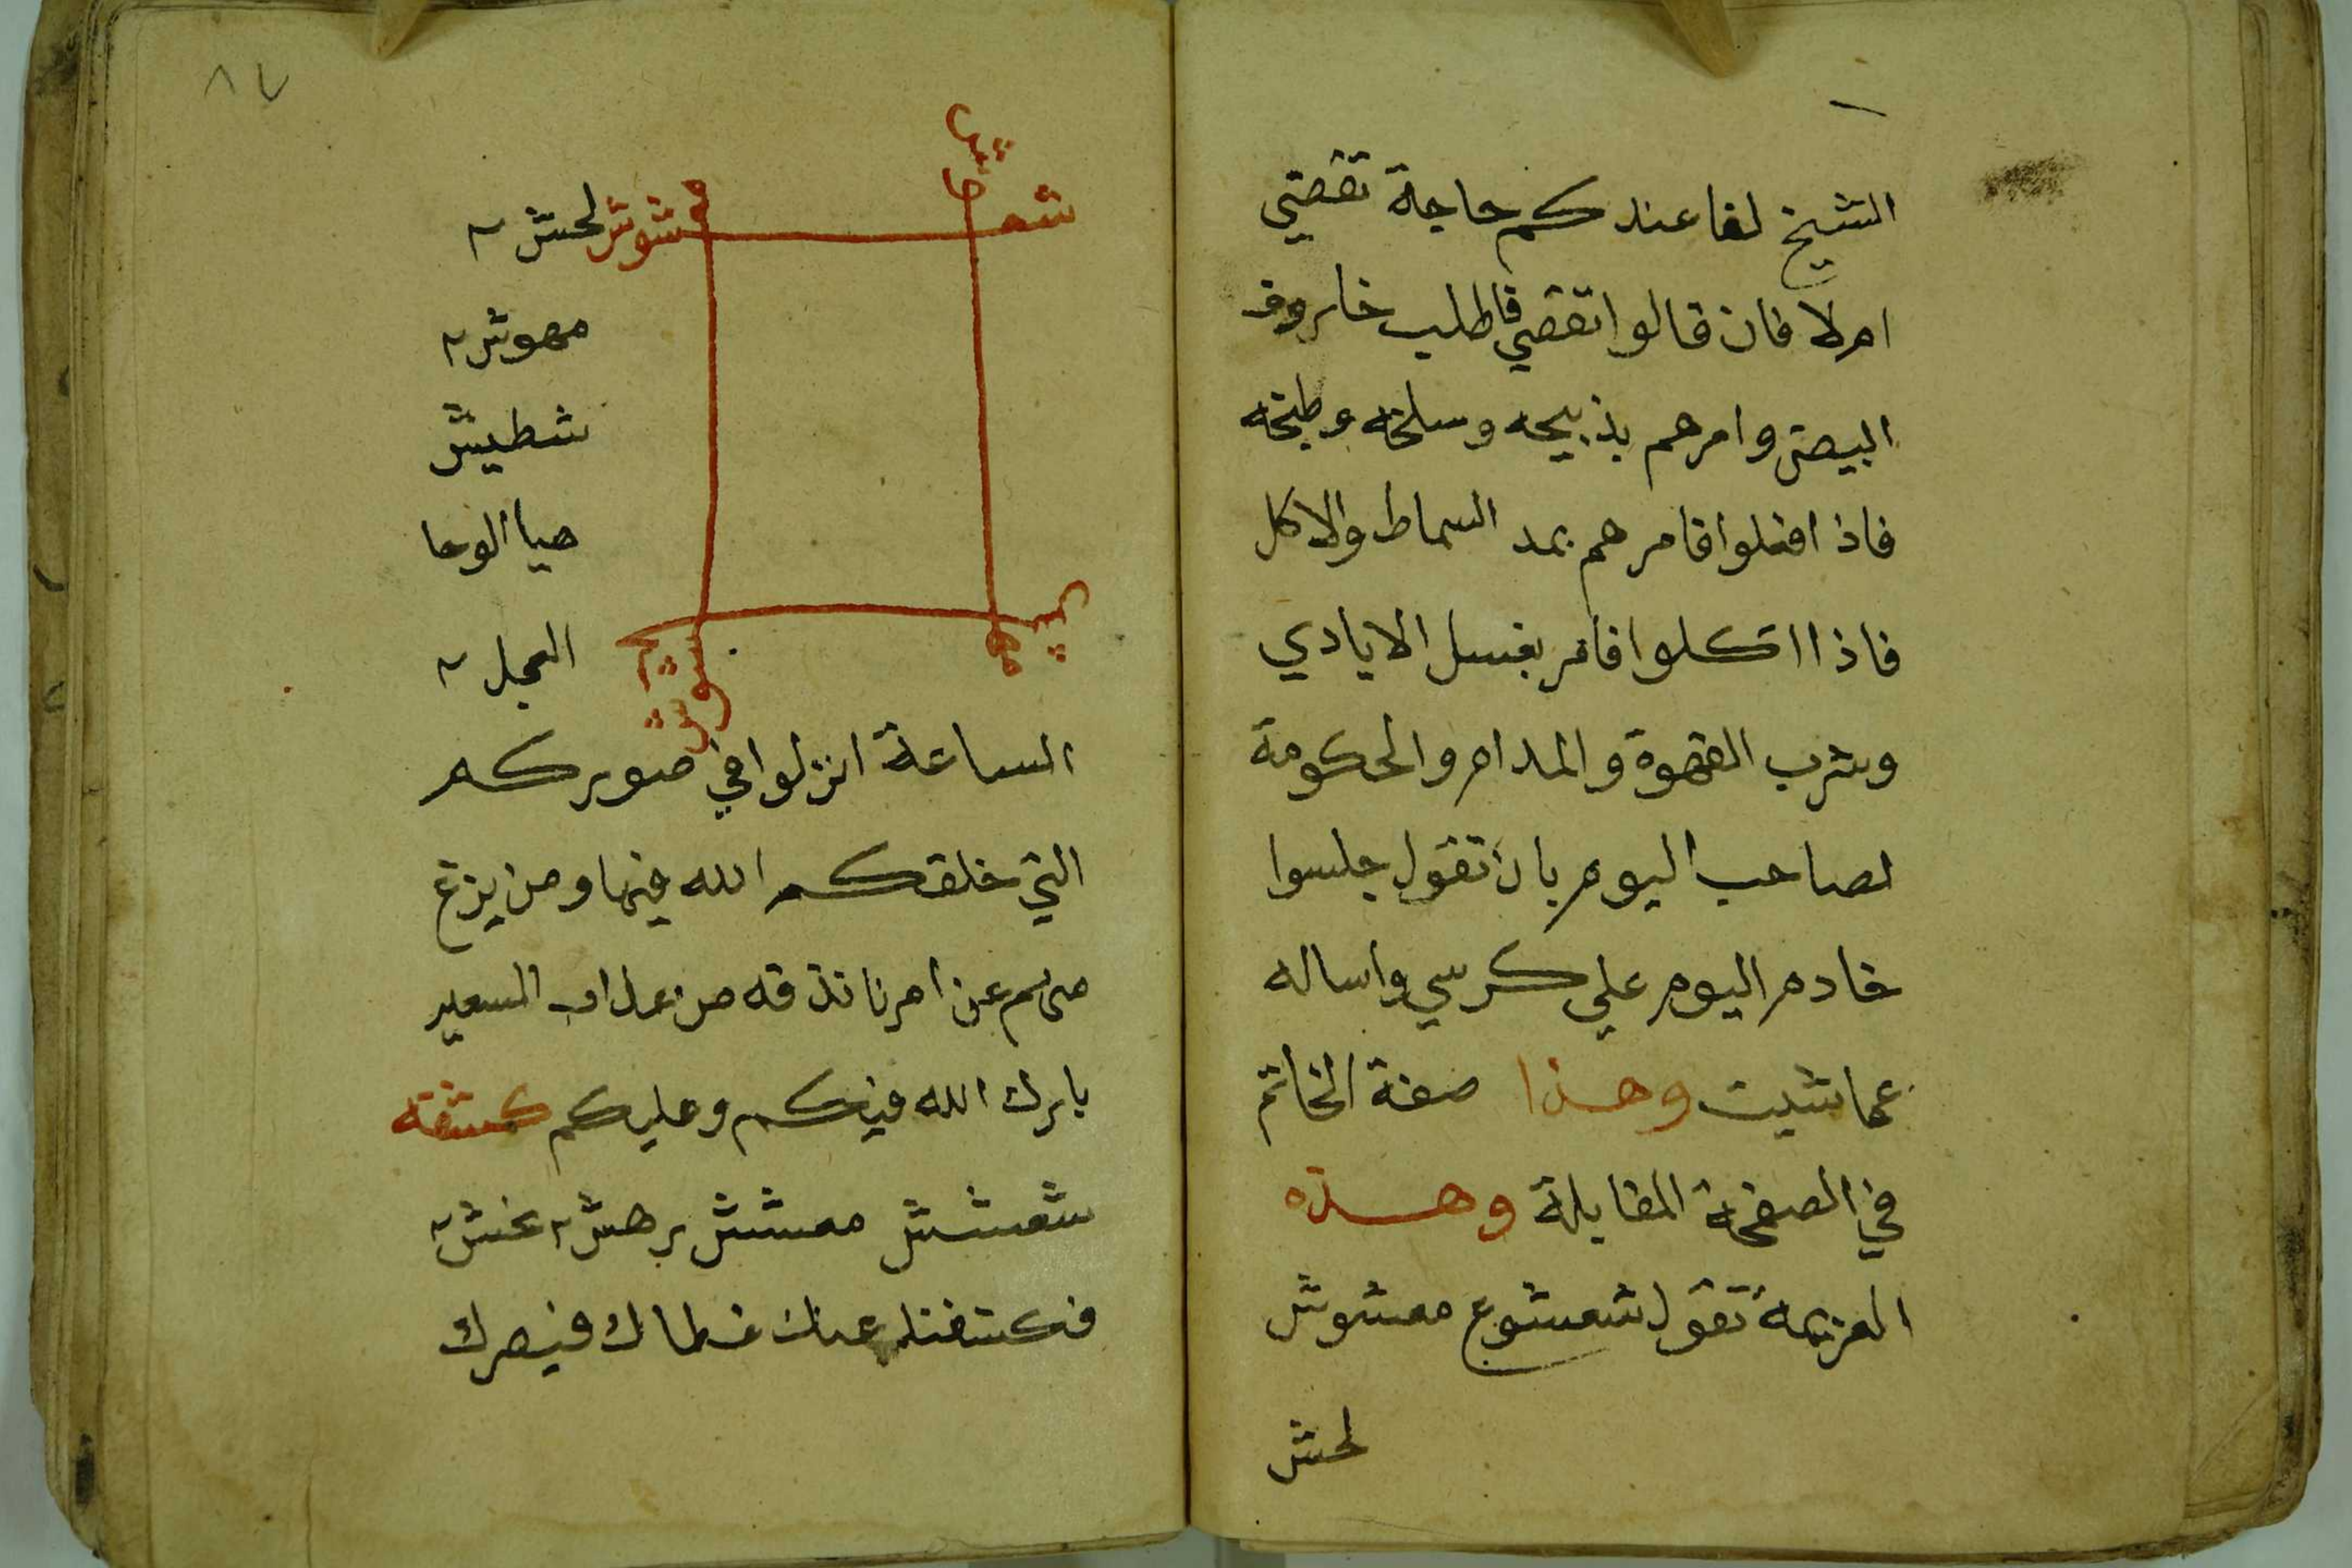 الشيخ لنا عندكم حاجة تقضي
ام لا فان قالوا تقضي فاطلب خاروف
البيصتي وامرهم بذبيحه وسلخه وطبخه
فاذا فعلوا فامرهم بمد السماط والاكل
فاذا اتكلوا فامر بغسل الايادي
وشرب القهوة والمدام والحكومة
لصاحب اليوم بان تقول جلسوا
خادم اليوم علي كرسي واساله
عما شيت وهذا صفة الخاتم
في الصفحة المقابلة وهذه
العزيمة تقول شمشوع معشوش
لحش
٨٧
شوش لحش ٢
مهوش ٢
شطيش
هيا الوحا
العجل ٢
الساعة انزلوا في صوركم
التي خلقكم الله فيها ومن يزغ
منكم عن امرنا نذقه من عذاب السعير
بارك الله فيكم وعليكم كشفه
شعشش معشش برهش ٢ بخش ٢
فكشفنا عنك غطاك فبصرك